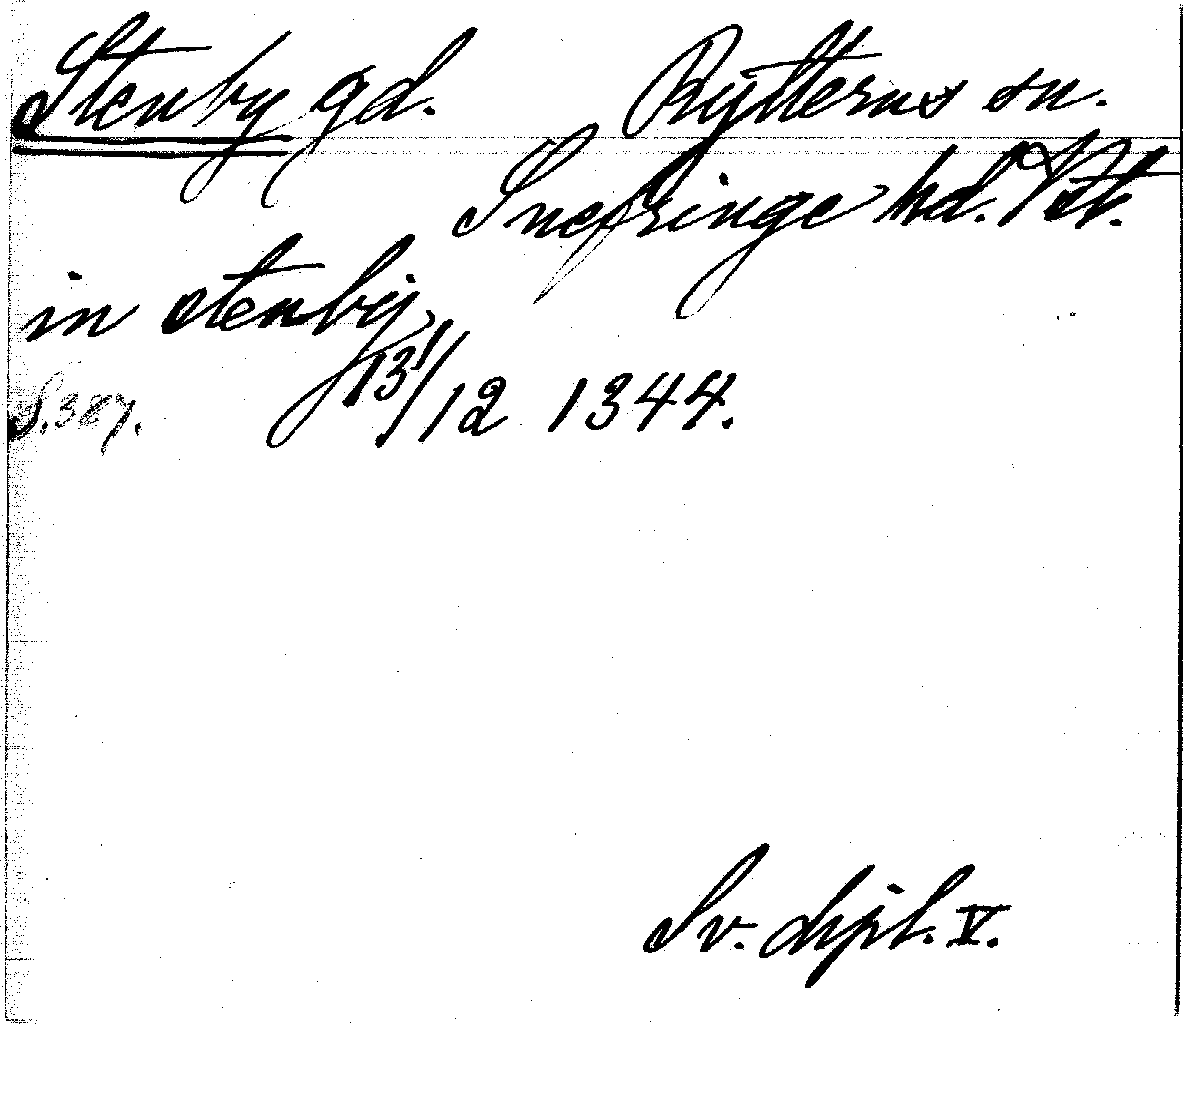 Stenby gd. Rytterns sn.
Snefringe hd. Vstm.
in stenby
13/12 1344.
S. 387.
Sv. dipl. V.